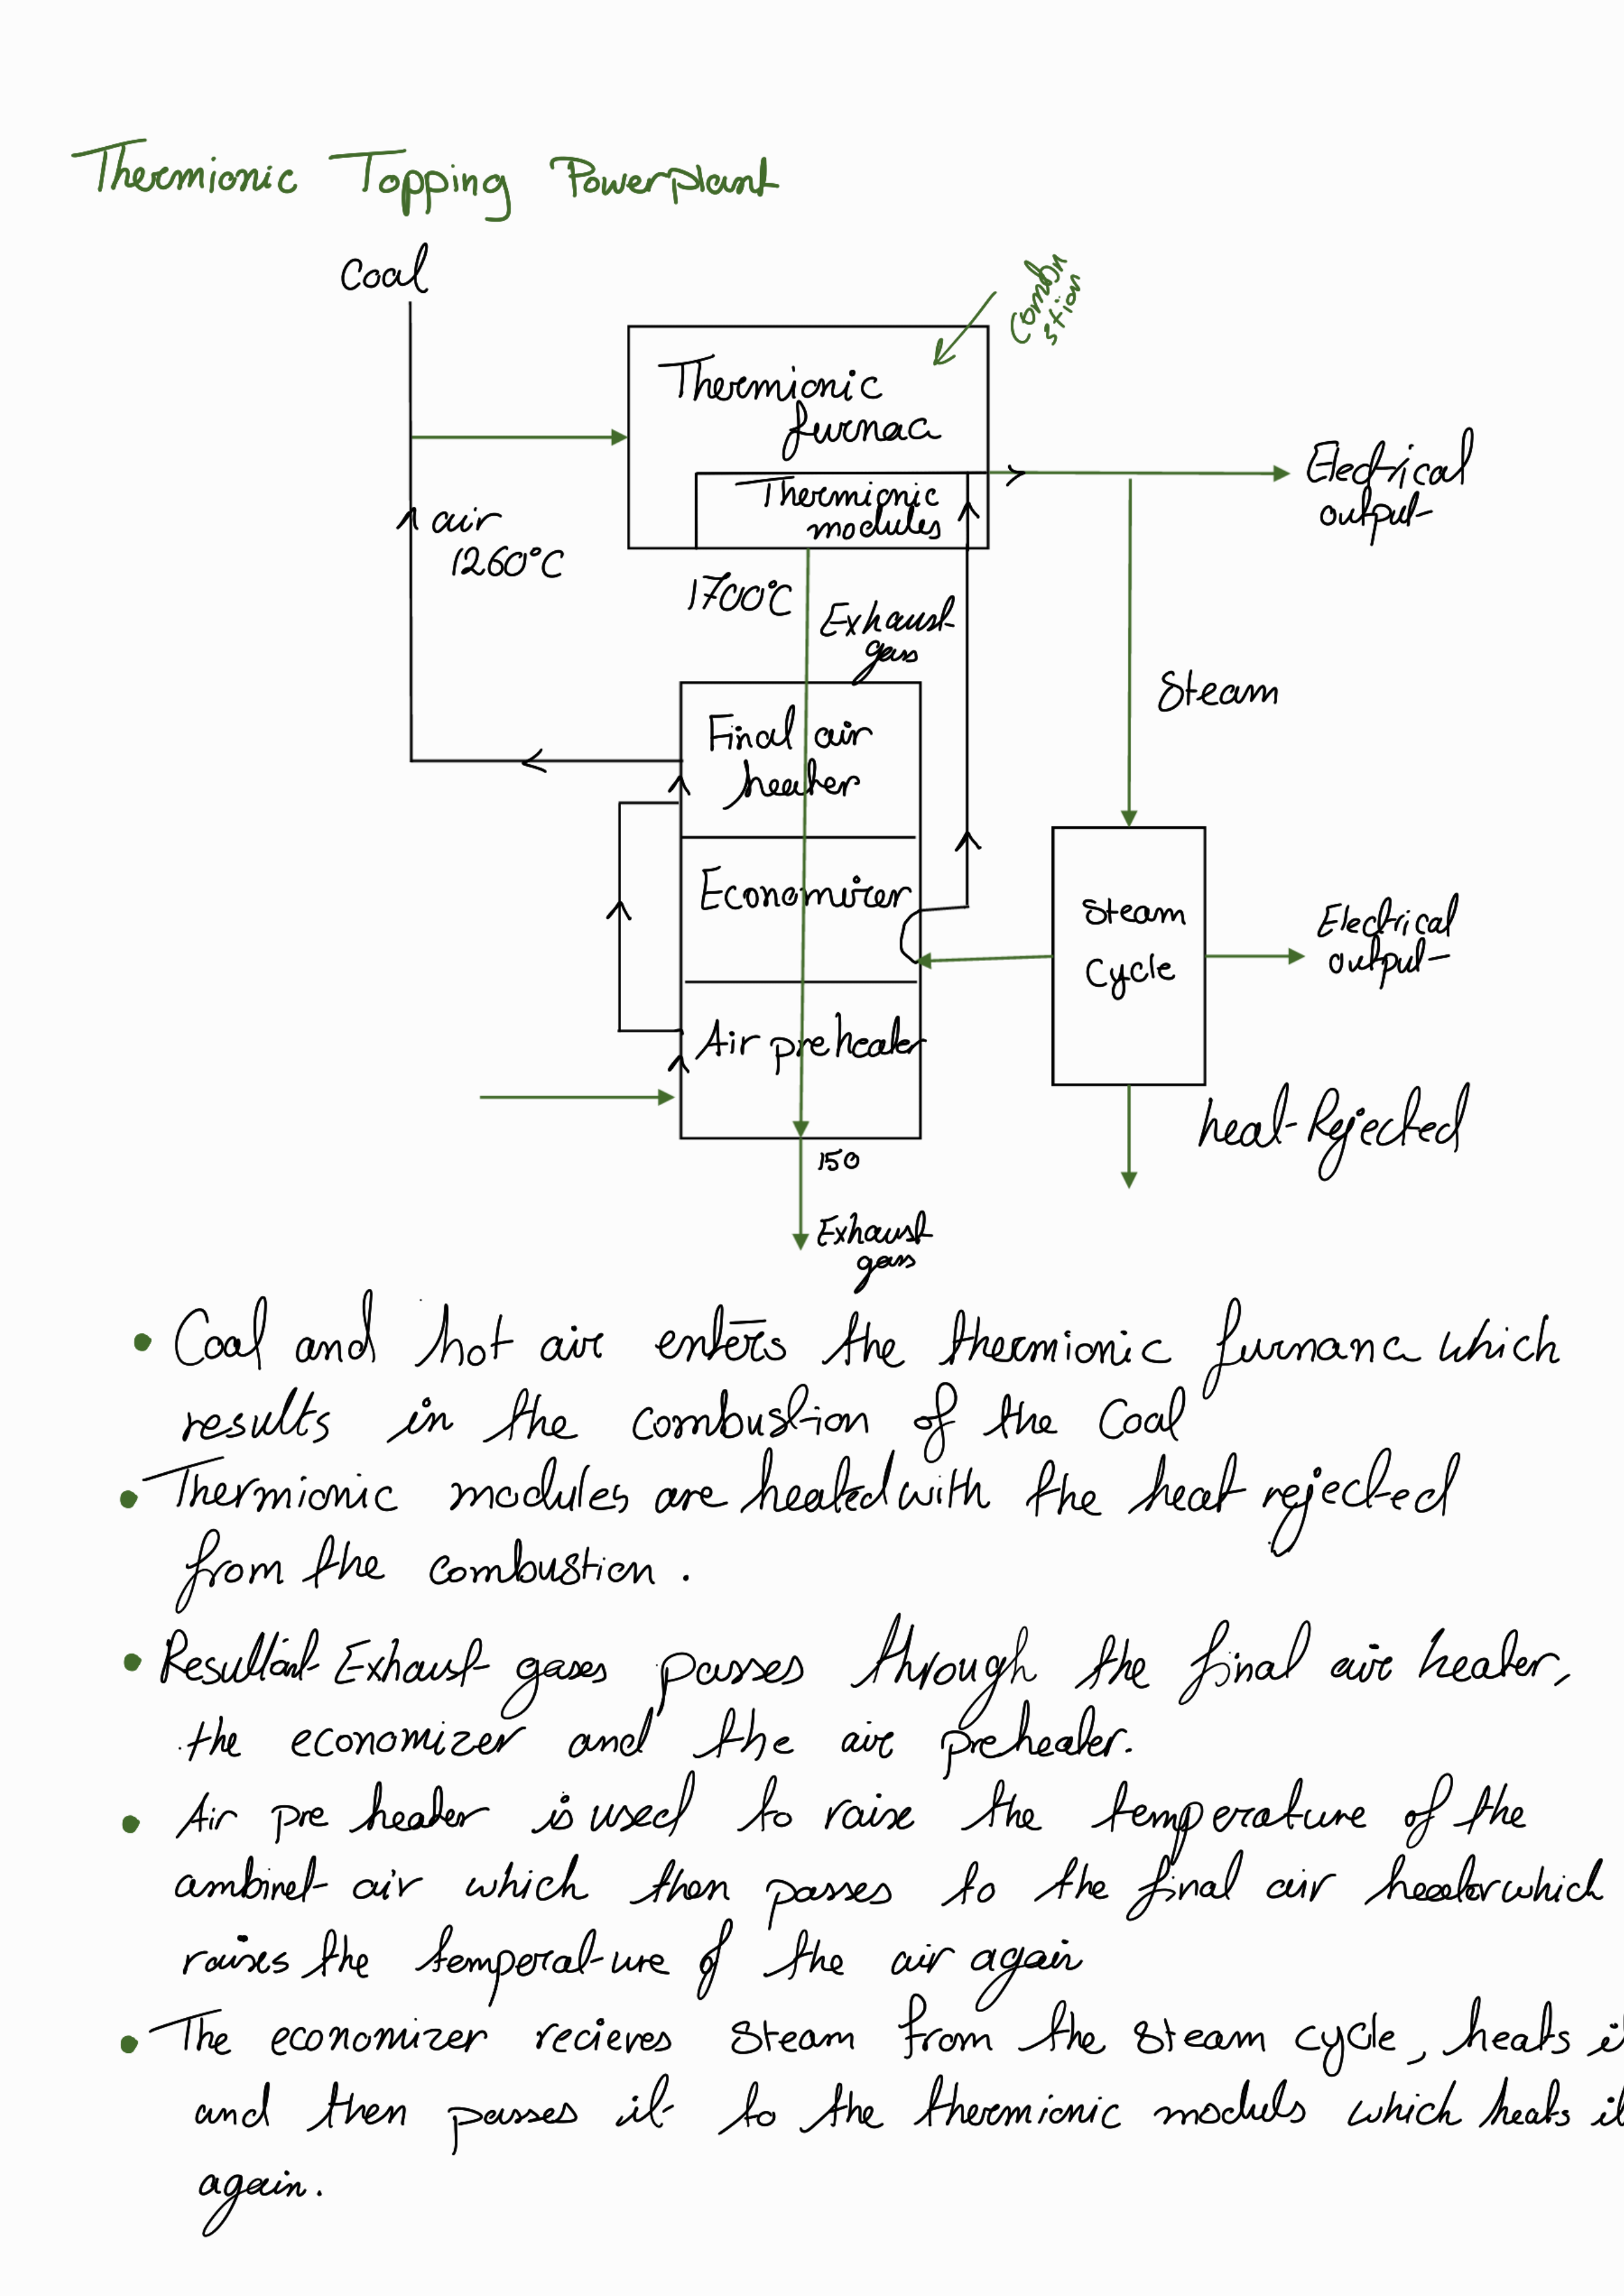 Thermionic Topping Powerplant
Coal
Combn
stion
Thermionic
furnac
Thermionic
modules
Electrical
output
air
1260°C
1700°C
Exhaust
gass
Steam
Final air
heater
Economizer
Steam
Cycle
Electrical
output
Air preheater
heat Rejected
150
Exhaust
gass
• Coal and hot air enters the thermionic furnanc which
results in the combustion of the Coal
• Thermionic modules are heated with the heat rejected
from the combustion.
• Resultant Exhaust gases passes through the final air heater,
the economizer and the air preheater.
• Air pre heater is used to raise the temperature of the
ambinet air which then passes to the final air heater which
raises the temperature of the air again
• The economizer recieves steam from the steam cycle, heats it
and then passes it to the thermionic moduls which heats it
again.